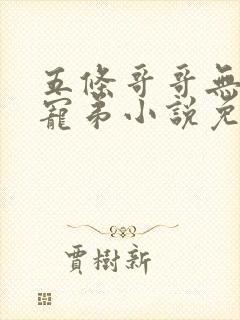 五條哥哥無
寵弟小說免
賈樹新